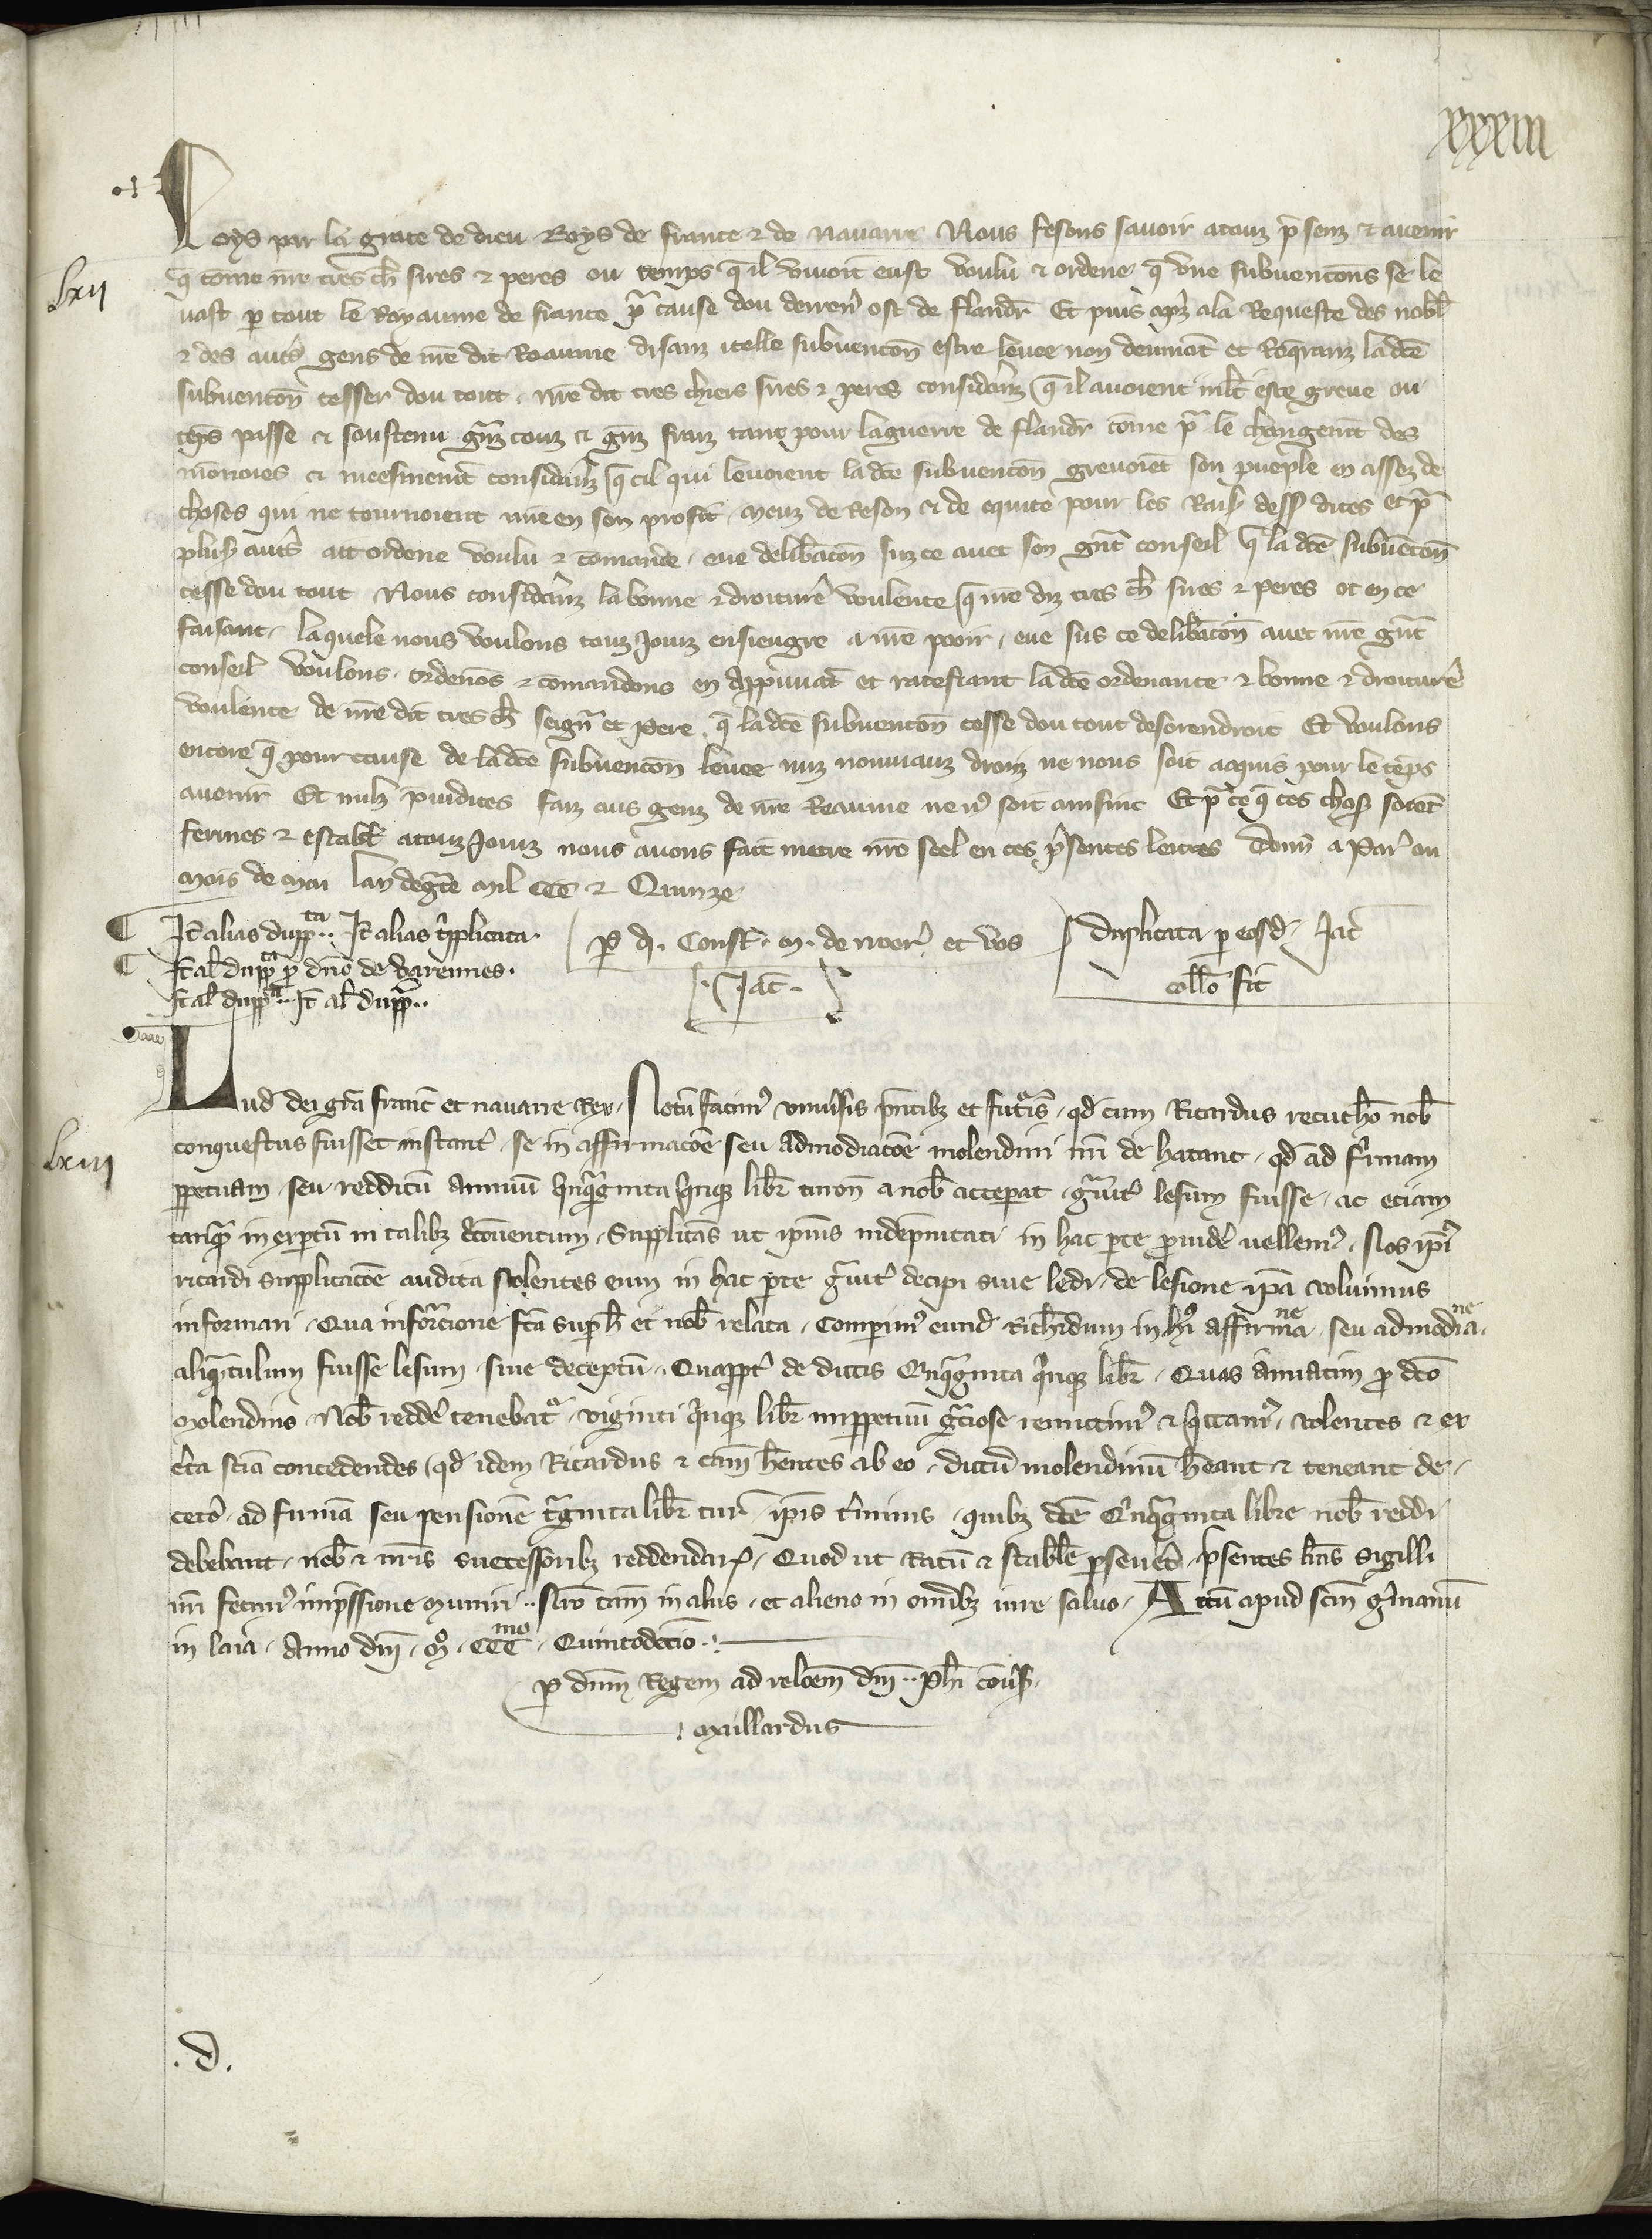 xxxiii
Loys par la grace de dieu Roys de france & de nauarre Nous fesons sauoir atouz p̃senz & auenir
lxii
q̃ cõme nr̃e tres ch̃ sires & peres ou temps q̃ il viuoit eust voulu & ordene q̃ vne subuencons se le
uast p tout le Royaume de france pr̃ cause dou derren̄ ost de flandr̃ Et puis apz̃ ala Requeste des nobl̃
& des autˢ gens de nr̃e dit Roaume disanz itelle subuencon̄ estre leuee non deuement et Req̃ranz la dc̃e
subuencon̄ cesser dou tout. nr̃e dit tres chiers sires & peres considãnz q̃ il auoient mlt̃ este greue ou
tẽps passe & soustenu gr̃nz couz & gr̃nz fraiz tant pour laguerre de flandr̃ cõme pr̃ le changem̃t des
mõnoies & meesmem̃t considãnz q̃ cil qui leuoient la dc̃e subuencon̄ greuoiẽt son pueple en assez de
choses qui ne tournoient mie en son profit. meuz de Reson & de equite pour les Rais̃ dess̃ dites et pr̃
plus̃ autˢ ait ordene voulu & comande. eue delib̃acon̄ suz ce auec son gr̃nt conseil q̃ la dc̃e subuẽcon̄
cesse dou tout Nous considãnz la bonne & droiturẽ voulente q̃ nr̃e diz tres ch̃ sires & peres ot en ce
faisant. laquele nous voulons touz Jourz ensieugre a nr̃e pooir. eue sus ce delib̃acon̄ auec nr̃e gr̃nt
conseil voulons. ordenõs & comandons en appruuãt et ratefiant la dc̃e ordenance & bonne & droiturẽ
voulente de nr̃e dit tres ch̃ seign̄r et Pere. q̃ la dc̃e subuencon̄ cesse dou tout desorendroit Et voulons
encore q̃ pour cause de la dc̃e subuencon̄ leuee nuz nouuiauz droiz ne nous soit acquis pour le tẽps
auenir Et nulz p̃iudices faiz aus genz de nr̃e Reaume ne n̄ soit ausint Et pr̃ ce q̃ ces choses soiẽt
fermes & establ̃ atouz Jourz nous auons fait metre nr̃e seel en ces p̃sentes lettres Donn̄ a Par̃ ou
mois de mai lan degr̃ce mil CCC & Quinze
Jt̃ alias dupp̃ᵗᵃ.. Jt̃ alias t̃plicata.
P d. Const̃. m. de noer̃ et vos
Duplicata p eosd̃ Jac̃
Jt̃ al̃ duppᵗᵃ p dño de varennes.
Jac̃.
coll̃o fit
Jt̃ al̃ dupp̃ᵃ.. Jt̃ al̃ dupp̃ᵃ..
Lud̃ dei gr̃a franc̃ et nauarre Rex. Notũ facim⁹ vniũsis p̃ntibz et futˢis. qd̃ cum Ricardus nob̃
lxiii
conquestus fuisset instant̃. se in affirmacõe seu admodiacõe molendini nr̃i de hacanc. qd̃ ad firmam
ppetuam. seu redditũ annuũ q̃nqᵃginta q̃nqz libr̃ turon̄ a nob̃ acceperat. gr̃uit̃ lesum fuisse. ac eciam
tanqᵃ in expertũ in talibz ccõuentum. Supplicãs ut ipius indẽpnitati in hac pte puidẽ vellem⁹. Nos ip̃i⁹
ricardi supplicacõe audita Nolentes eum in hac pte gr̃uit̃ decipi siue ledi. de lesione ip̃a voluimus
informari. Qua inforᵃcione fc̃a suph̃ et nob̃ relata. Comperim⁹ eund̃ Richardum in h̃i⁹ affirmaⁿᵉ seu admodiaⁿᵉ.
aliqᵃntulum fuisse lesum. siue deceptũ. Quapp̃t̃ de dictis Q̃nqᵃginta q̃nqz libr̃. Quas annatim p dc̃o
molendino. Nob̃ redde tenebat͛. viginti q̃nqz libr̃ imppetuũ gr̃ciose remittim⁹ & q̃ttam⁹. volentes & ex
c̃ta sciã concedendes qd̃ idem Ricardus & cãm h̃entes ab eo. dictũ molendinũ h̃eant & teneant de.
cetõ. ad firmã seu pensionẽ t̃ginta libr̃ tur̃. ip̃is t̃minis. quibz dc̃e Q̃nqᵃginta libre nob̃ reddi.
debebant. nob̃ & nr̃is successoribz reddendaꝝ. Quod ut Ratũ & stabile pseueret. p̃sentes lr̃as sigilli
nr̃i fecim⁹ imp̃ssione muniri.. Nr̃o tam̃ in aliis. et alieno in omĩbz iure saluo. Actũ apud sc̃m g̃manũ
in laia. Anno dñi. mº. CCCᵐᵒ. Quintodecĩo..
P dñum Regem ad relcõem dñi.. Ph̃i cõũs̃.
Maillardus
.d.